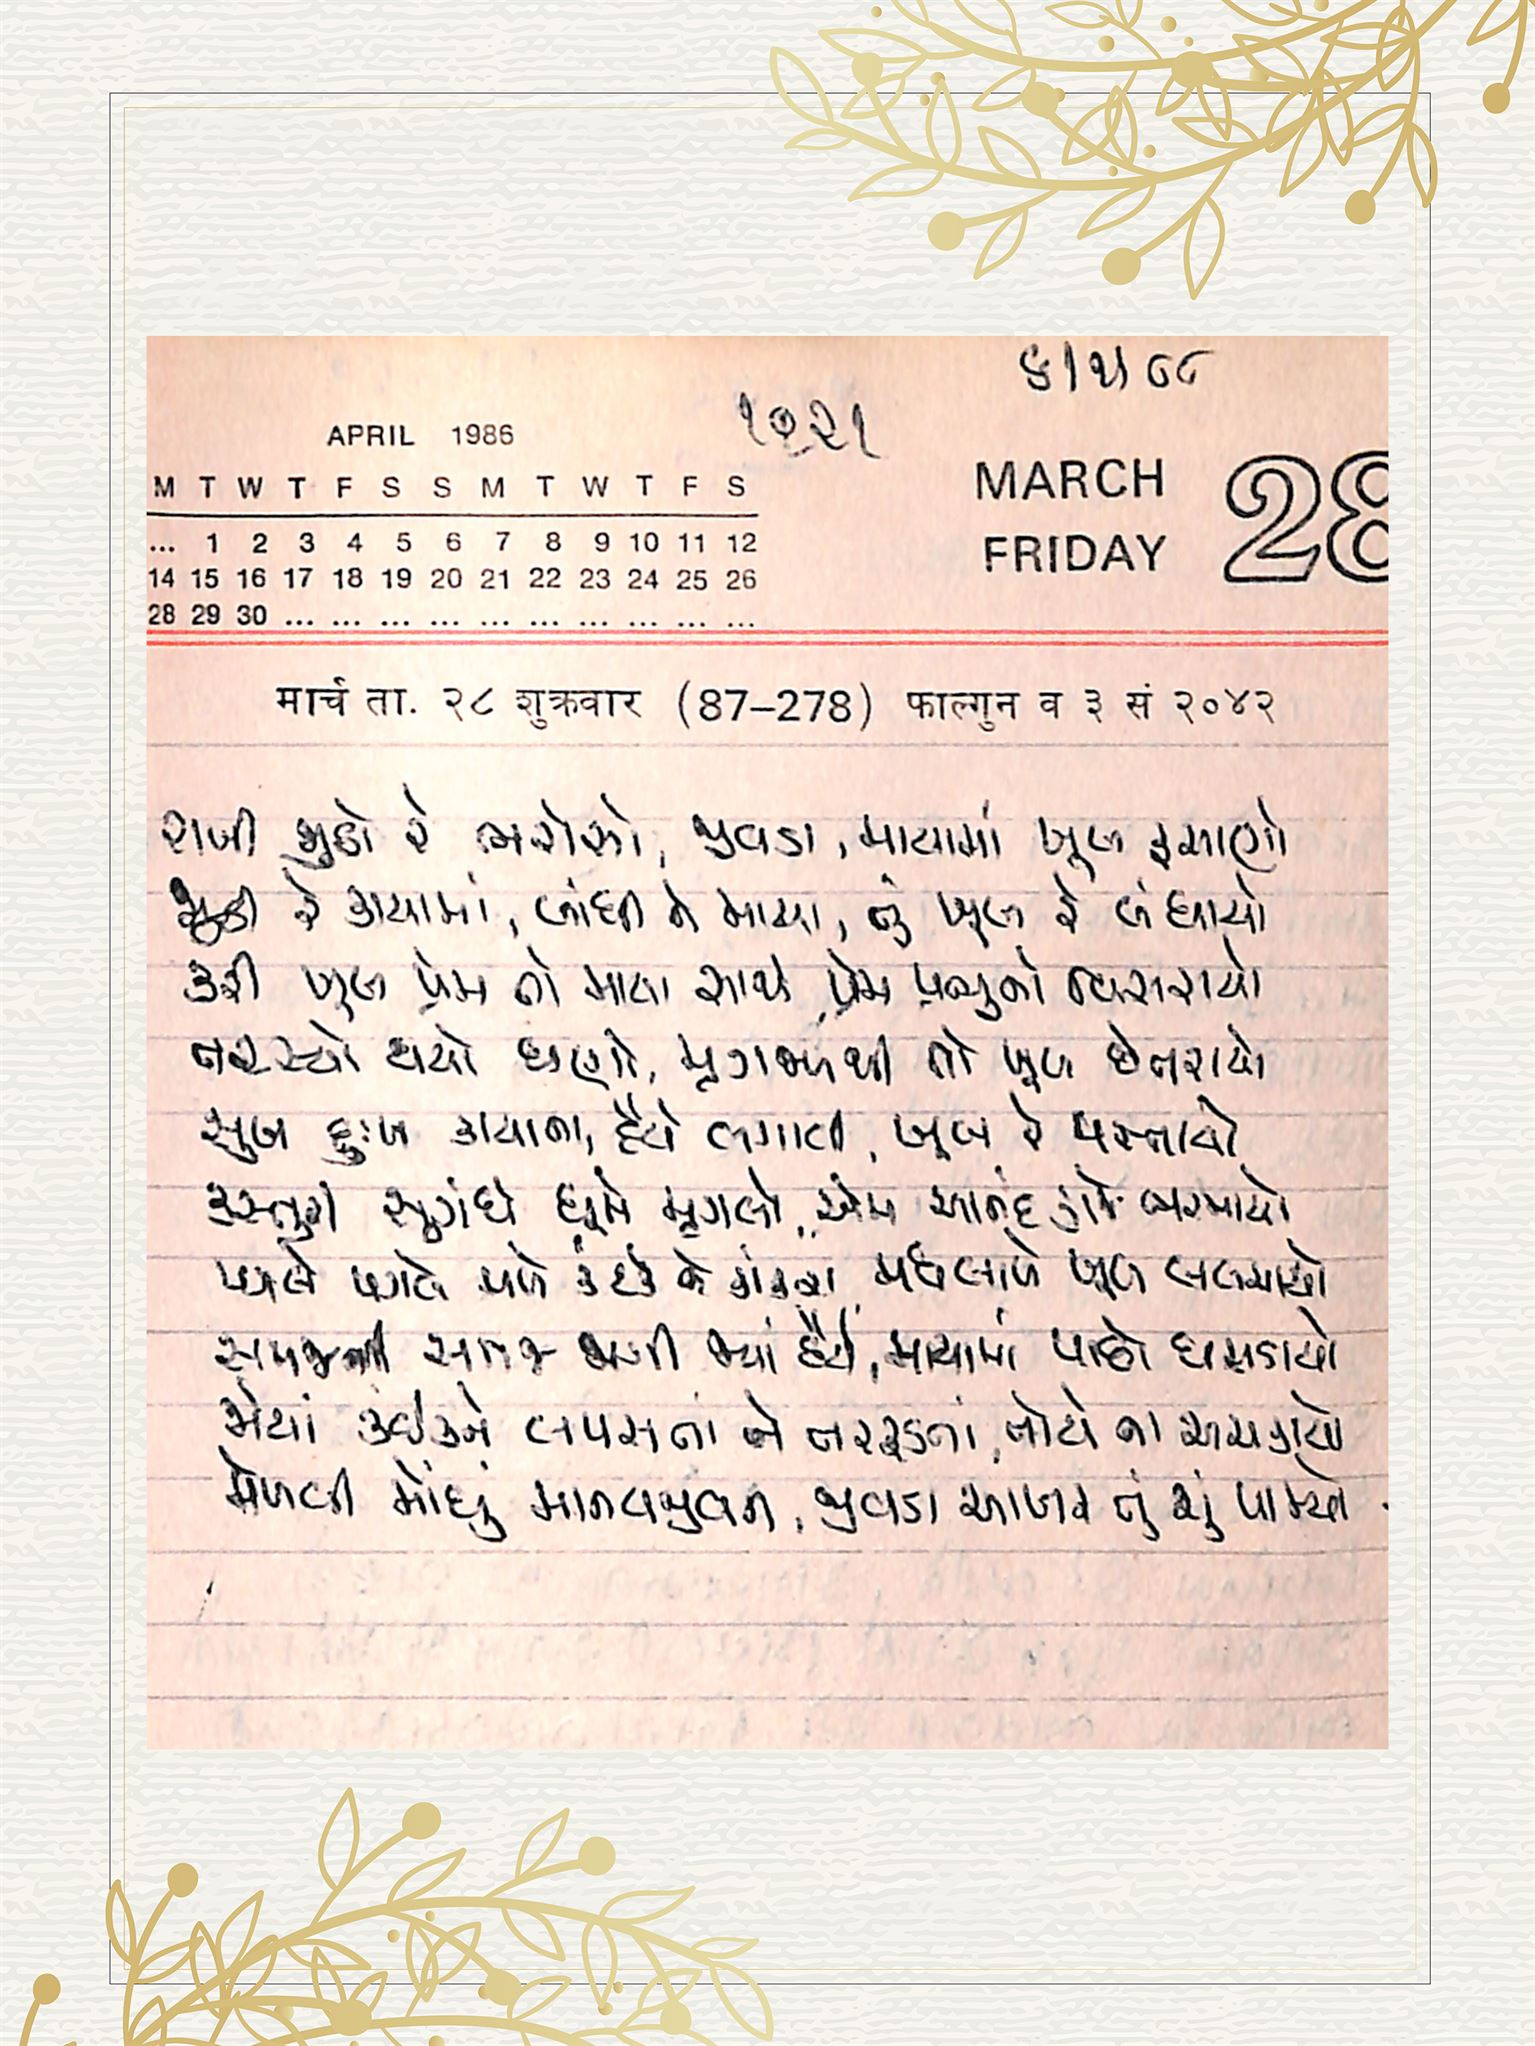 ૬।૫।૮૮
૧૭૨૧
APRIL 1986
MARCH 28
FRIDAY
M T W T F S S M T W T F S
... 1 2 3 4 5 6 7 8 9 10 11 12
14 15 16 17 18 19 20 21 22 23 24 25 26
28 29 30 ... ... ... ... ... ... ... ... ... ...
मार्च ता. २८ शुक्रवार (87–278) फाल्गुन व ३ सं २०४२
રાખી જુઠો રે ભરોસો, જીવડા, માયામાં ખૂબ ફસાણો
જુઠી રે કાયામાં, બાંધી તે માયા, તું ખૂબ રે બંધાયો
કરી ખૂબ પ્રેમ તો માયા સાથે પ્રેમ પ્રભુનો વિસરાયો
તરસ્યો થયો ઘણો, મૃગજળથી તો ખૂબ છેતરાયો
સુખ દુઃખ કાયાના, હૈયે લગાવી, ખૂબ રે પસ્તાયો
કસ્તુરી સુગંધે ઘૂમે મૃગલો, એમ આનંદ કાજે ભરમાયો
પગલે પગલે મળે કંઈક કાંકરા, મધલાળે ખૂબ લલચાયો
સમજની સમજ જાગી જ્યાં હૈયે, માયામાં પાછો ઘસડાયો
જોયાં કંઈકને લપસતાં ને તરફડતાં, તોયે ના અચકાયો
મેળવી મોંઘું માનવજીવન, જીવડા આખર તું શું પામ્યો